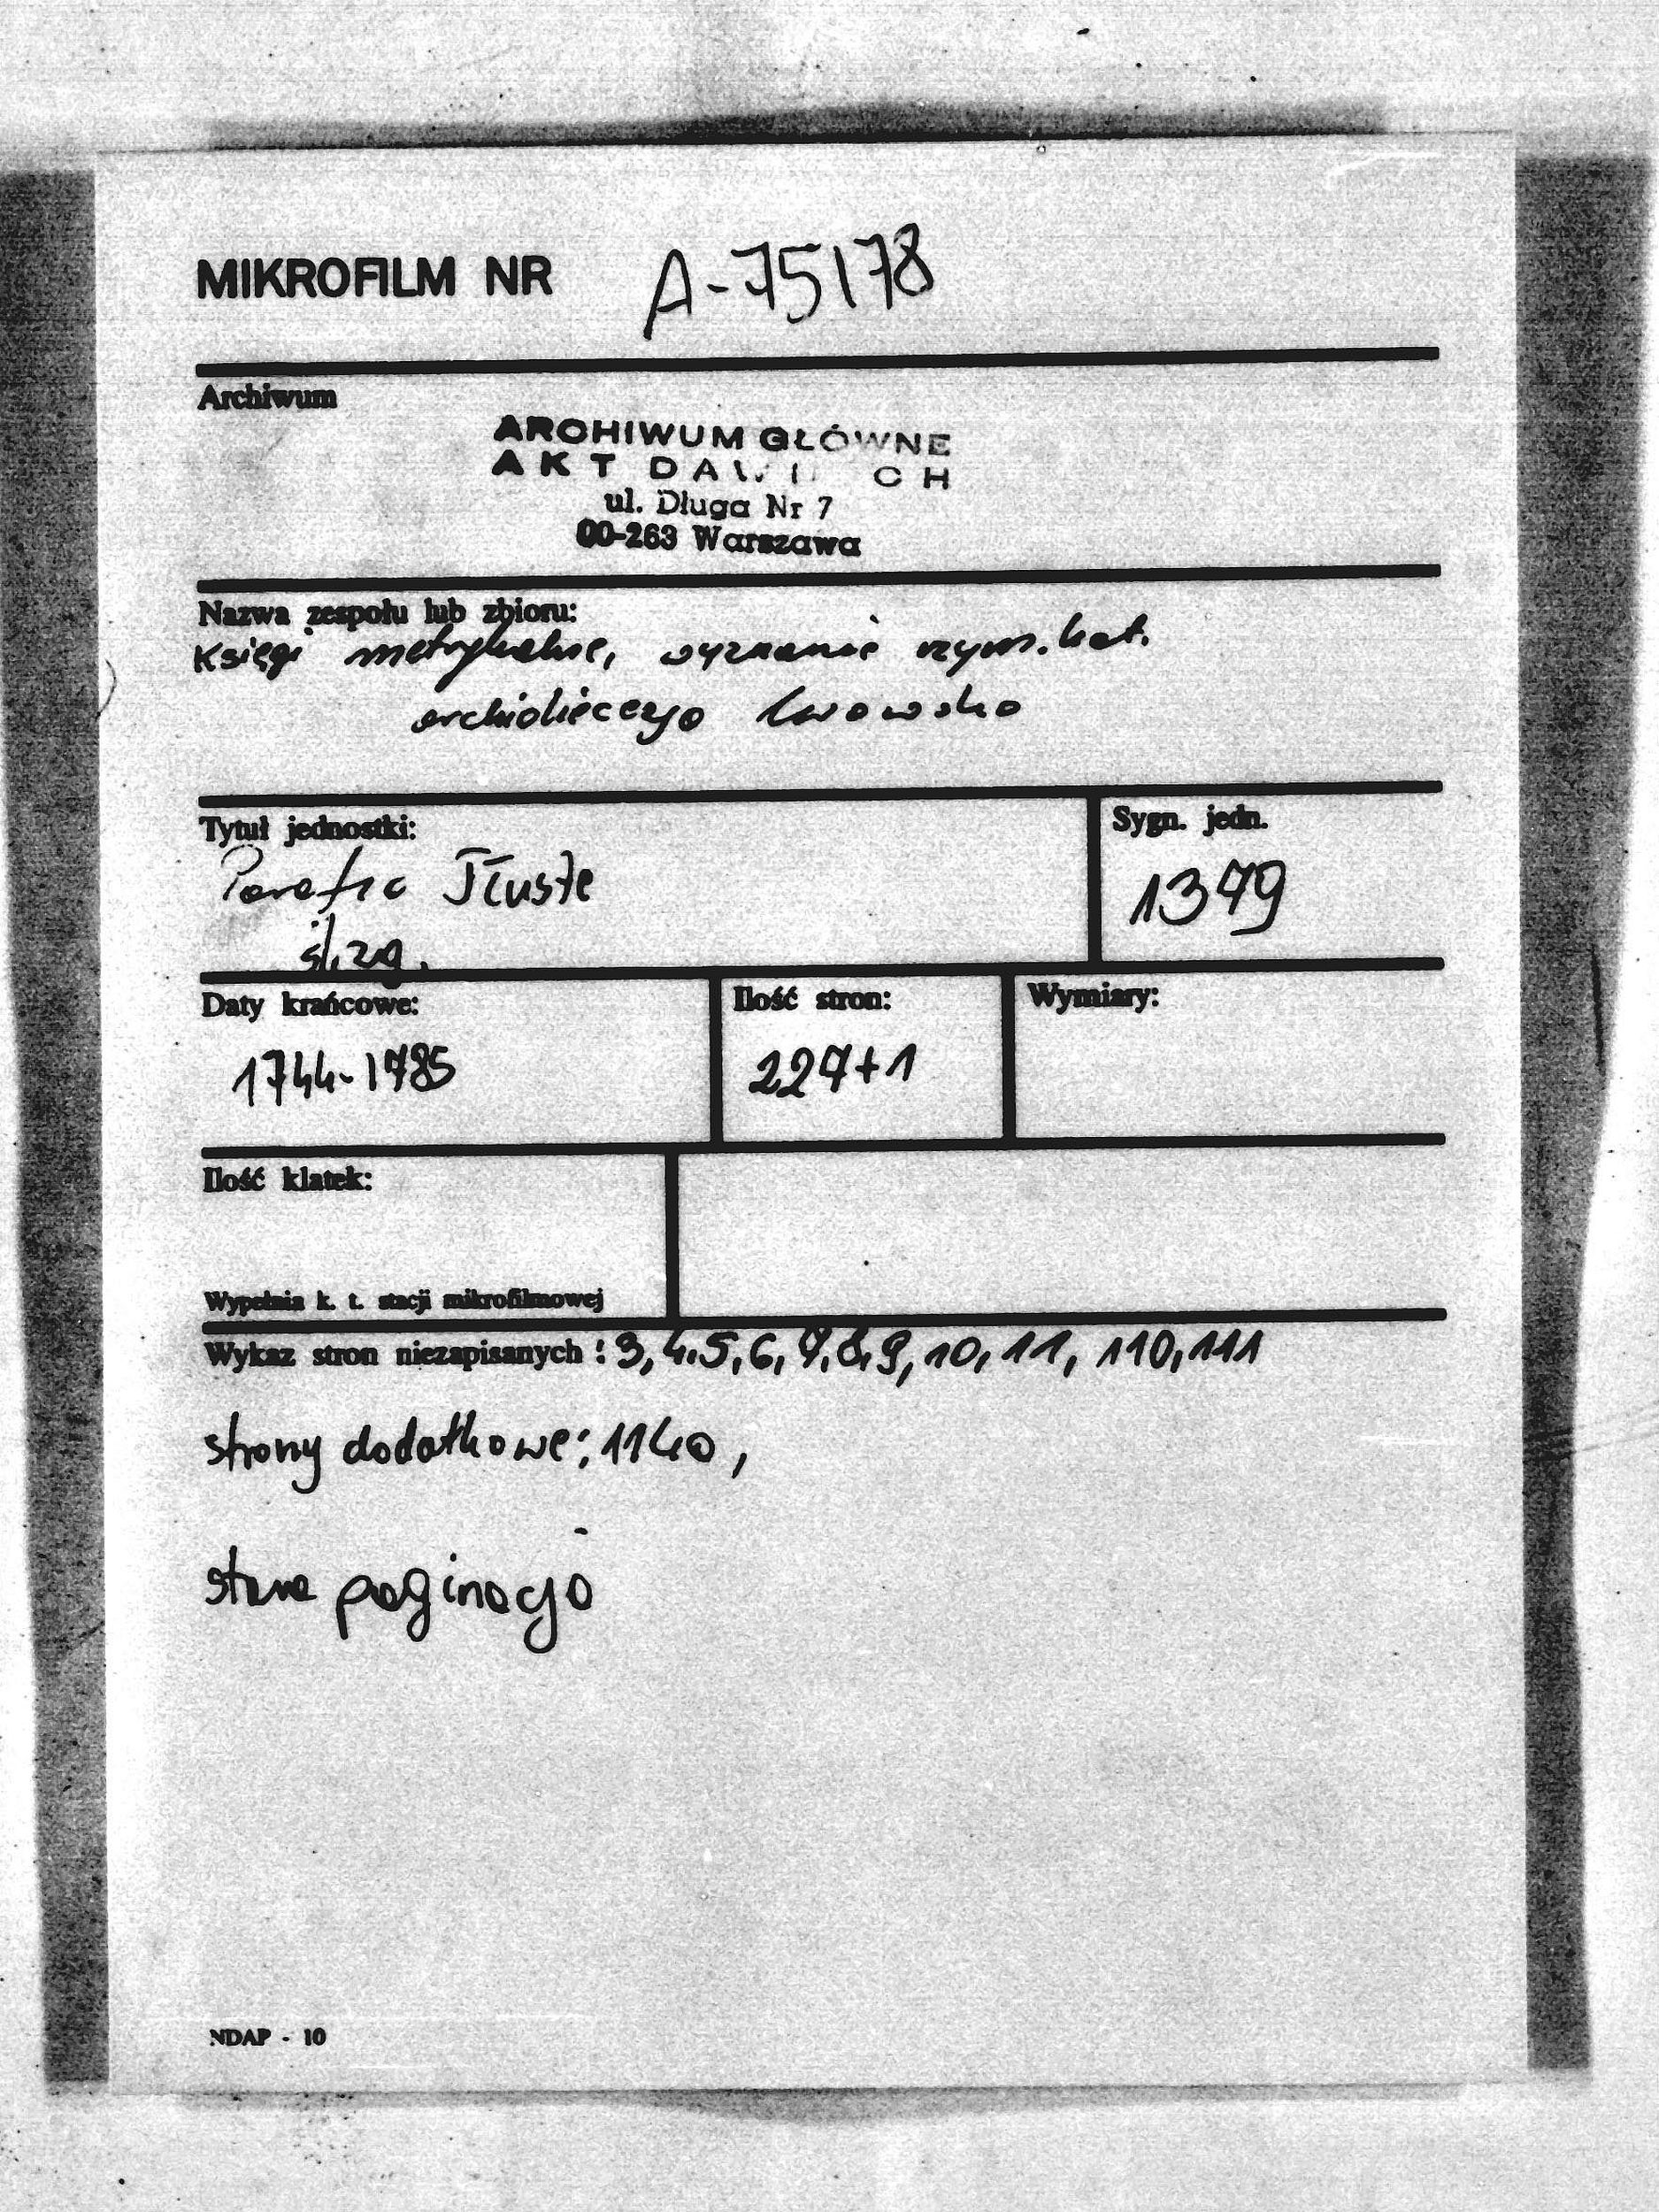 MIKROFILM NR A-75178
Archiwum
ARCHIWUM GŁÓWNE
AKT DAWNYCH
ul. Długa Nr 7
00-263 Warszawa
Nazwa zespołu lub zbioru:
Księgi metrykalne, wyznanie rzym. kat.
archidiecezja lwowska
Tytuł jednostki: Sygn. jedn.
Parafia Tłuste 1379
śl. zg.
Daty krańcowe: Ilość stron: Wymiary:
1744-1785 227+1
Ilość klatek:
Wypełnia k. t. stacji mikrofilmowej
Wykaz stron niezapisanych : 3, 4, 5, 6, 7, 8, 9, 10, 11, 110, 111
strony dodatkowe: 114a,
stara paginacja
NDAP - 10